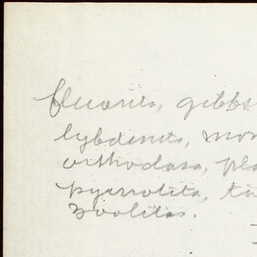 fluorits, gibbs
lybdenits, mon
orthoclasa, pla
pyrrotita, ti
zoolitas.